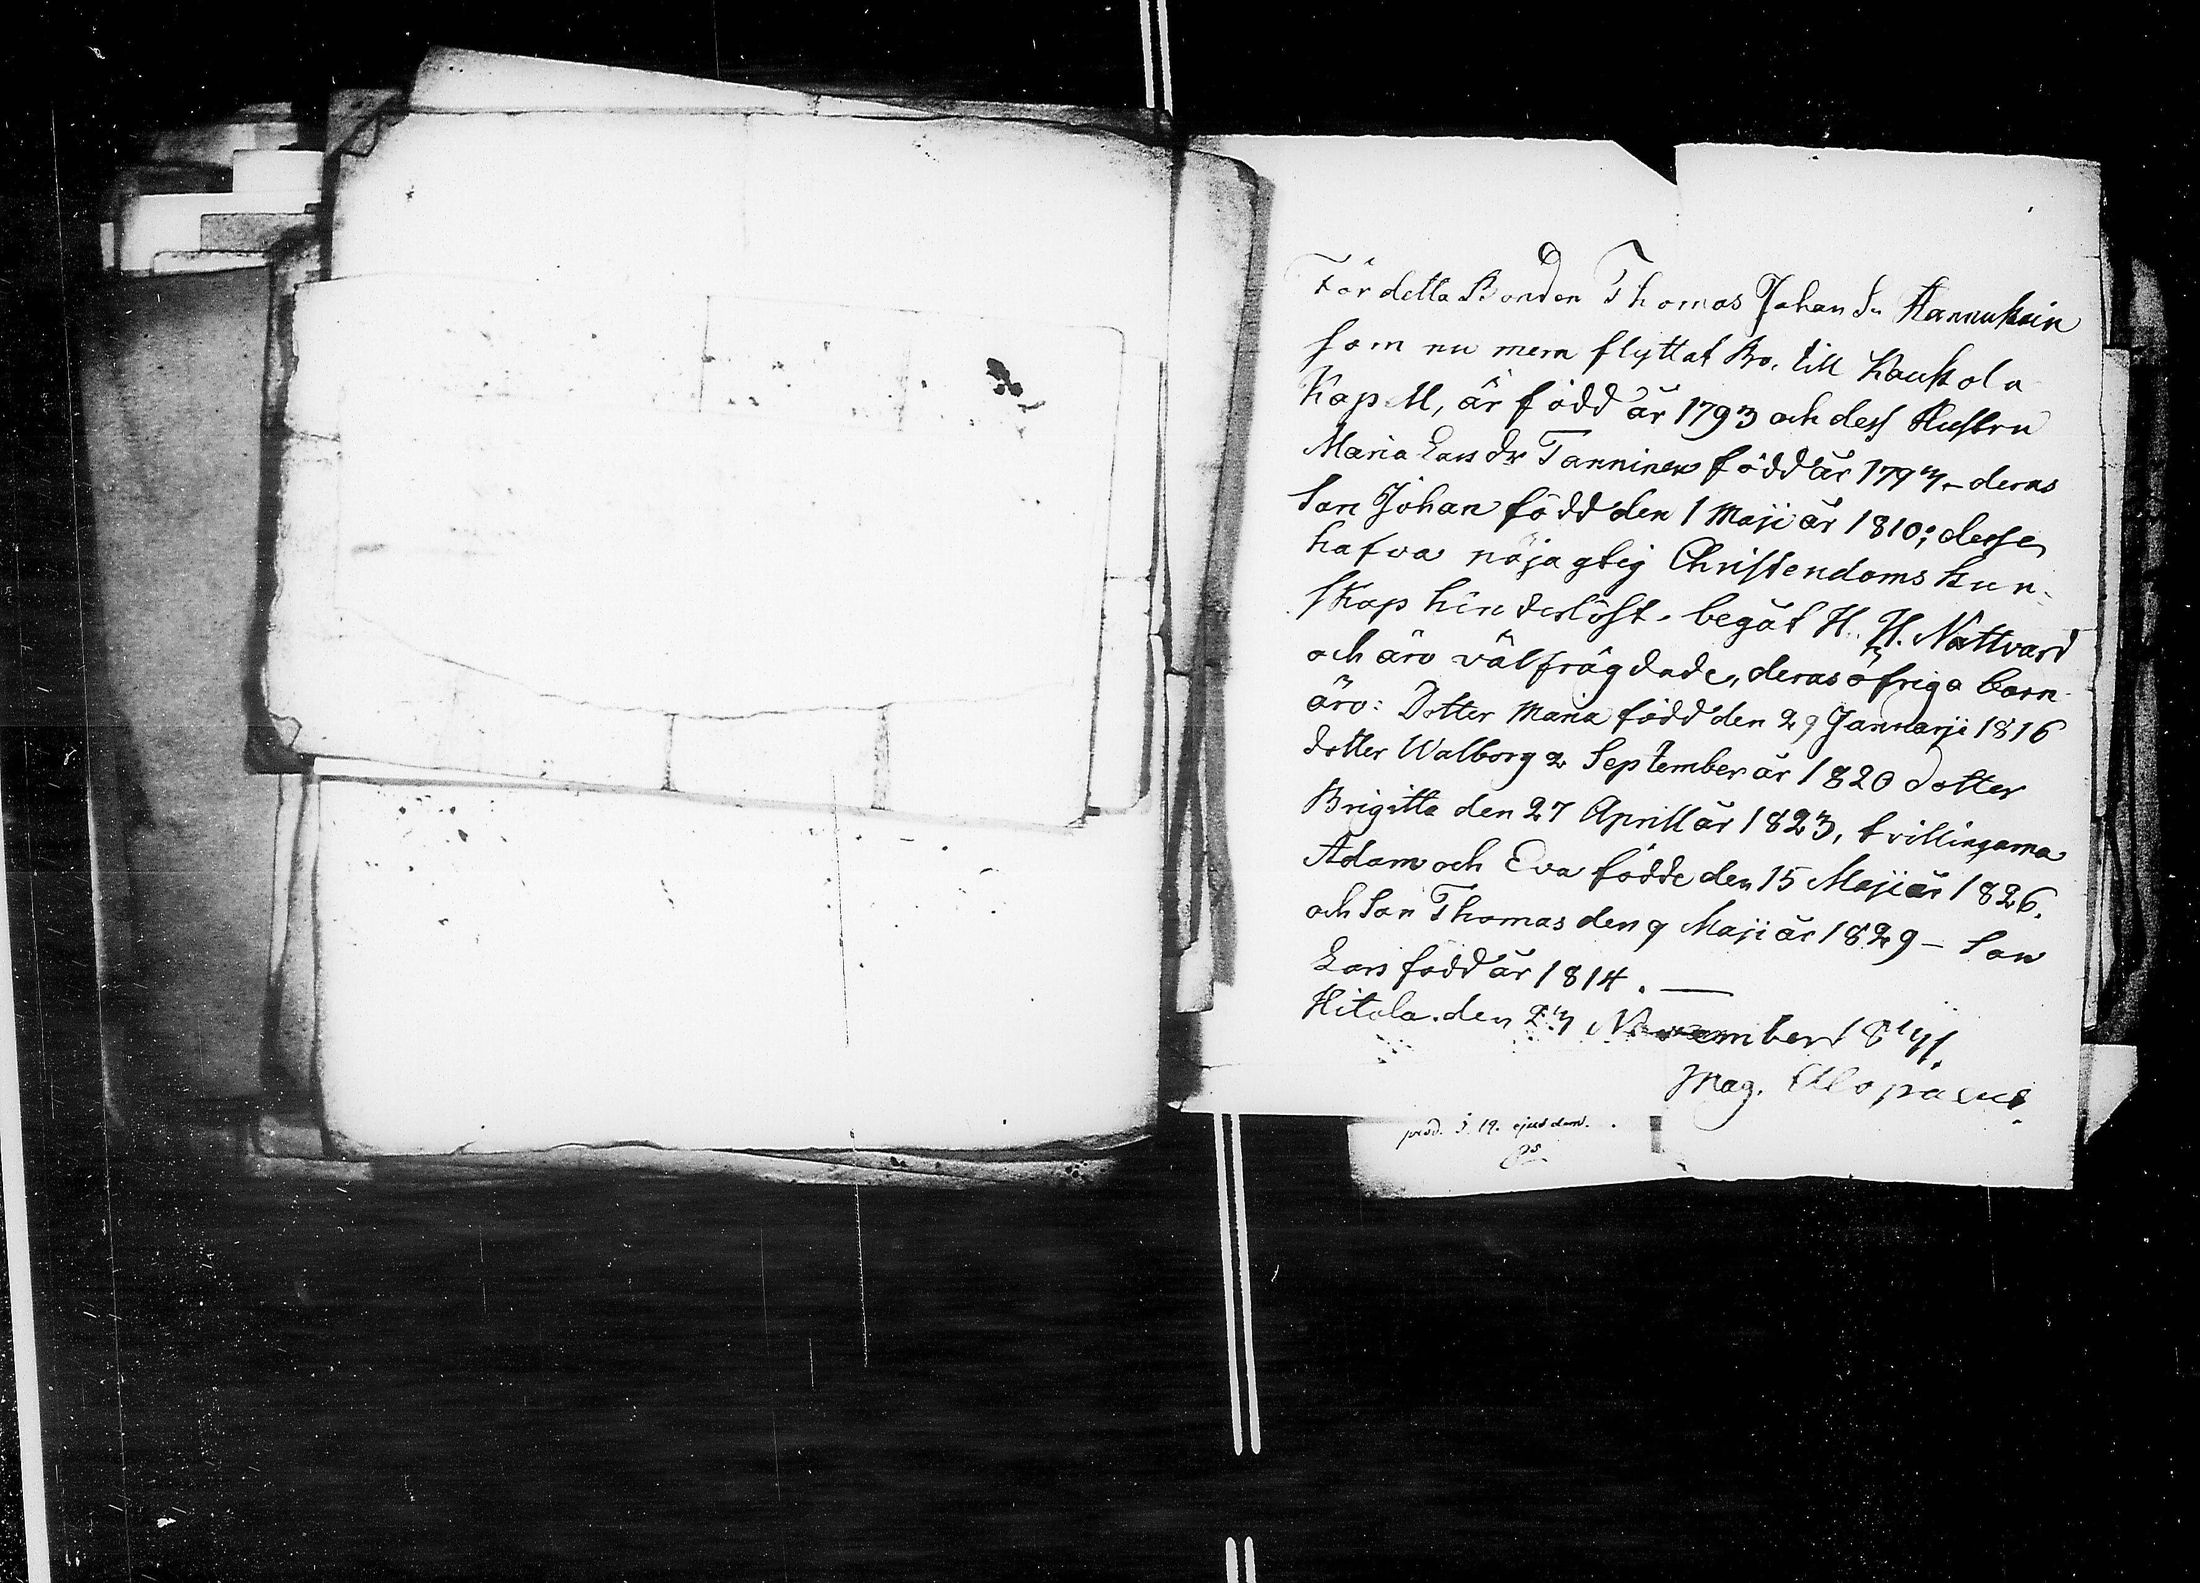 För detta Bonden Thomas Johan Sn Hannukain
som nu mera flyttat Bo. till Kaukola
Kapell, är född år 1793 och dess Hustru
Maria Lars dr Tanninen född år 1797 – deras
Son Johan född den 1 Maji år 1810; desse
hafva nöjagtig Christendoms kun-
skap hinderlöst. begåt H. H. Nattvard
och äro välfrägdade, deras öfriga barn
äro: Dotter Maria född den 29 Januarji 1816
dotter Walborg 2 September år 1820 dotter
Brigitta den 27 Aprill år 1823, tvillingarna
Adam och Eva födde den 15 Maji år 1826.
och Son Thomas den 9 Maji år 1829 – Son
Lars född år 1814. —
Hitola. den 27 November
Mag. Alopæus
prod. d. 19. ejusdem.